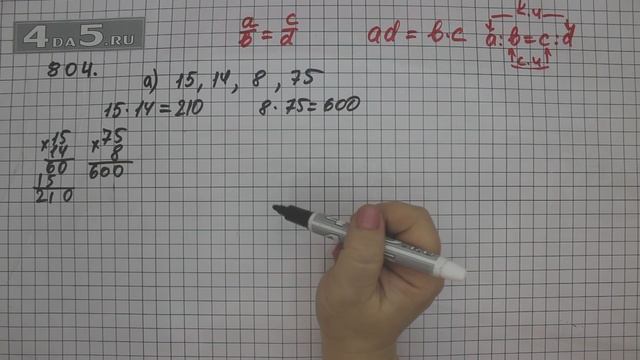 4DA5.RU
a/b = c/d   ad = b·c   a:b=c:d
к.ч
с.ч
804.   а) 15, 14, 8, 75
15·14=210   8·75=600
×15   ×75
14   8
60   600
15
210